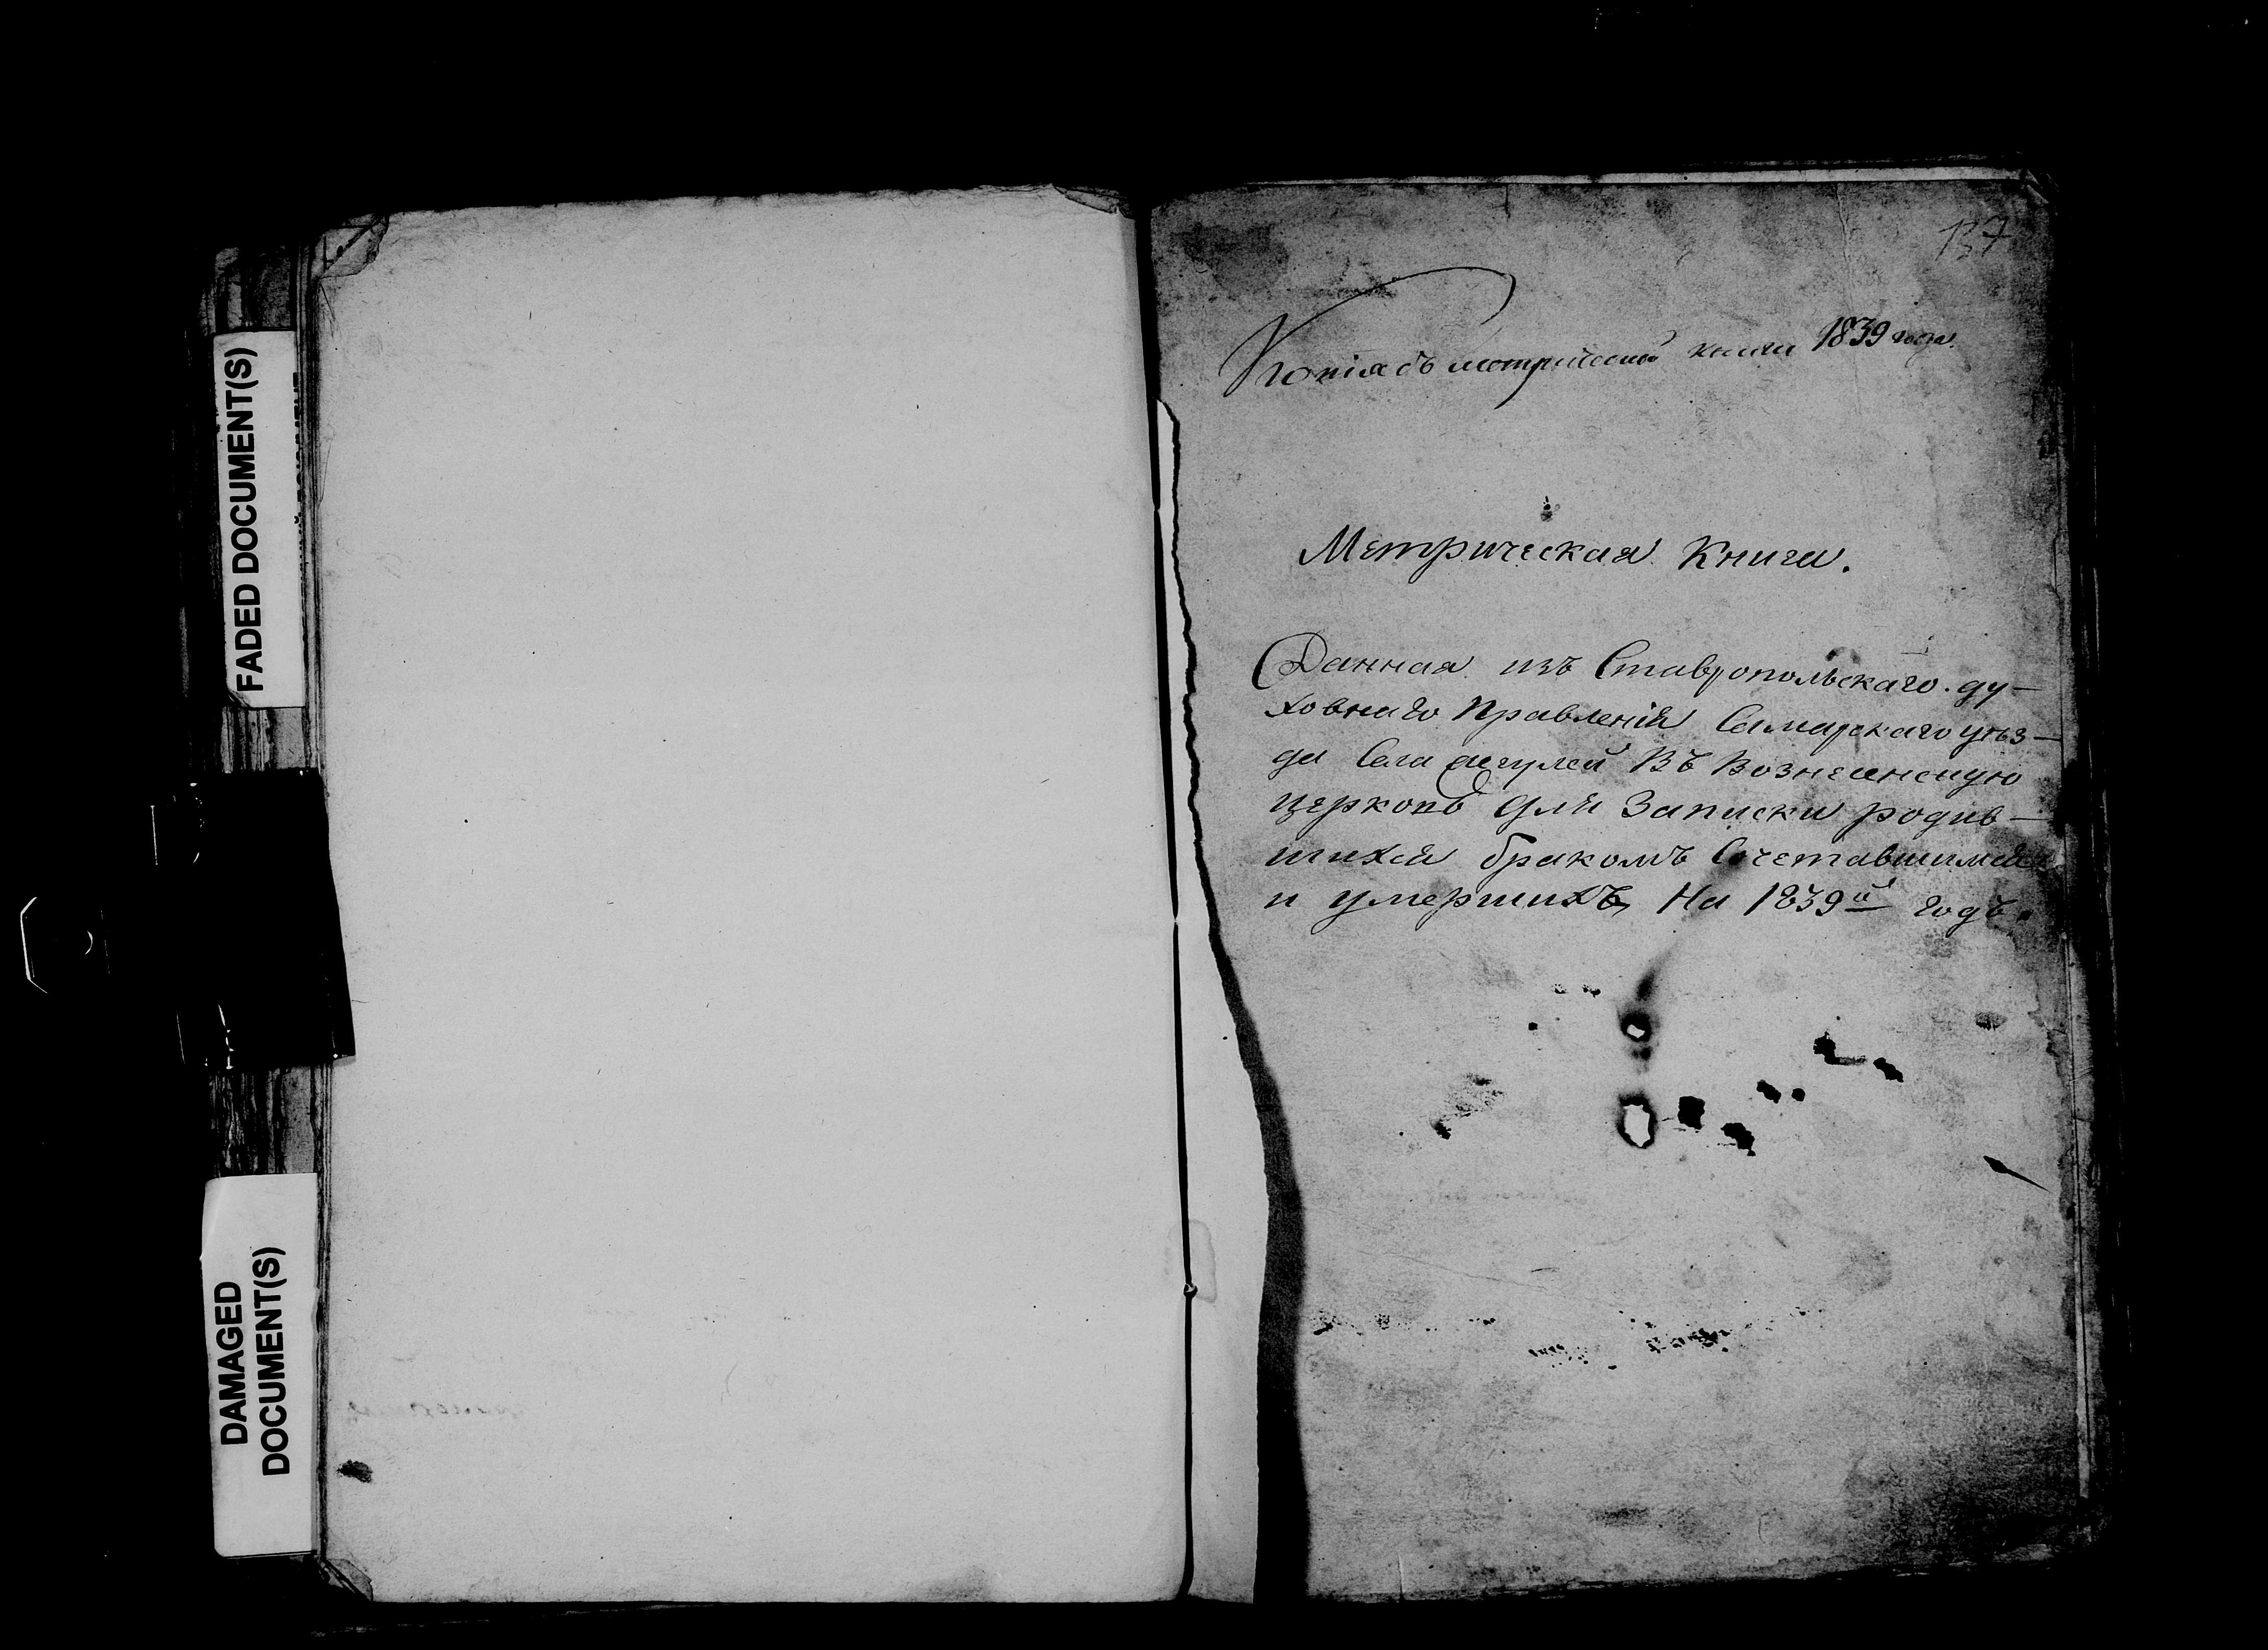 FADED DOCUMENT(S)
DAMAGED
DOCUMENT(S)
137
Копія съ метрической книги 1839 года.
Метрическая Книга.
Данная изъ Ставропольскаго ду-
ховнаго Правленія Самарскаго уѣз-
да Села Въ Вознесенскую
церковь для Записки родив-
шихся бракомъ Сочетавшимся
и умершихъ На 1839й годъ.